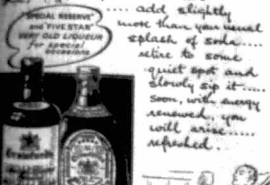 "SPECIAL RESERVE"
and "FIVE STAR"
VERY OLD LIQUEUR
for special
occasions
..... add slightly
more than your usual
splash of soda....
retire to some
quiet spot and
slowly sip it.....
soon, with energy
renewed, you
will arise.....
refreshed...
Crawford's